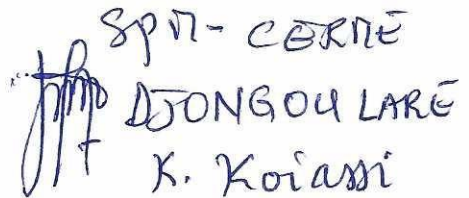 SPM- CERME
DJONGOULARE
K. Koiassi